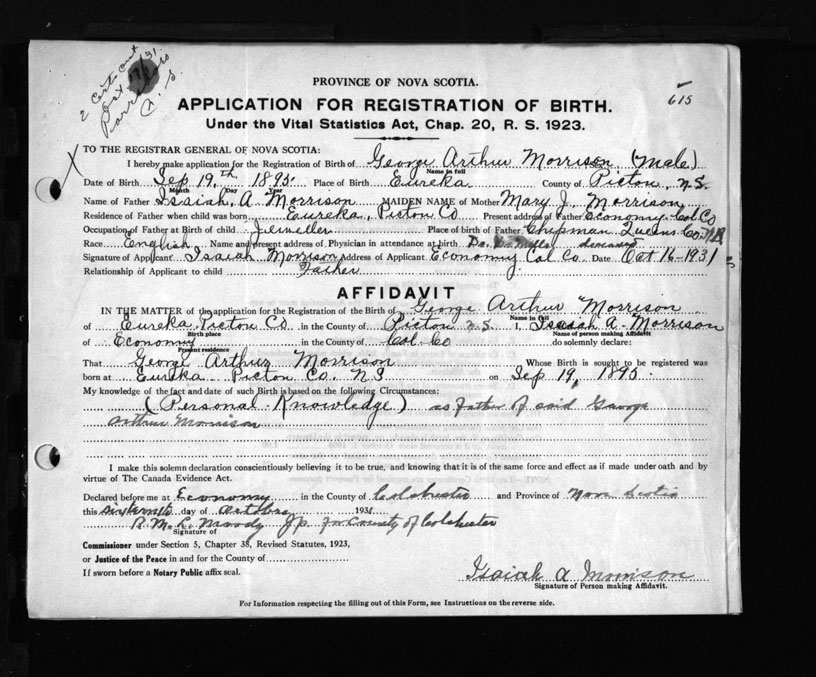 2 Cert out
615
PROVINCE OF NOVA SCOTIA.
APPLICATION FOR REGISTRATION OF BIRTH.
Under the Vital Statistics Act, Chap. 20, R. S. 1923.
TO THE REGISTRAR GENERAL OF NOVA SCOTIA:
I hereby make application for the Registration of Birth of George Arthur Morrison (Male)
Name in full
Date of Birth Sep 19th 1895 Place of Birth Eureka County of Pictou, N.S.
Month Day Year
Name of Father Isaiah A Morrison MAIDEN NAME of Mother Mary J. Morrison
Residence of Father when child was born Eureka, Pictou Co Present address of Father Economy Col Co
Occupation of Father at Birth of child Jeweller Place of birth of Father Chipman Queens Co. N.B.
Race English Name and present address of Physician in attendance at birth Dr. deceased
Signature of Applicant Isaiah Morrison Address of Applicant Economy Col Co. Date Oct 16-1931
Relationship of Applicant to child Father
AFFIDAVIT
IN THE MATTER of the application for the Registration of the Birth of George Arthur Morrison
Name in full
of Eureka Pictou Co in the County of Pictou N.S. I, Isaiah A. Morrison
Birth place Name of person making Affidavit
of Economy in the County of Col-Co do solemnly declare:
Present residence
That George Arthur Morrison Whose Birth is sought to be registered was
born at Eureka Pictou Co. N.S on Sep 19, 1895.
My knowledge of the fact and date of such Birth is based on the following Circumstances:
(Personal-Knowledge) as Father of said George
Arthur Morrison
I make this solemn declaration conscientiously believing it to be true, and knowing that it is of the same force and effect as if made under oath and by
virtue of The Canada Evidence Act.
Declared before me at Economy in the County of Colchester and Province of Nova Scotia
this Sixteenth day of October 1931
R. M. L. Moody J.p. for County of Colchester
Signature of
Commissioner under Section 5, Chapter 38, Revised Statutes, 1923,
or Justice of the Peace in and for the County of
If sworn before a Notary Public affix seal.
Isaiah A Morrison
Signature of Person making Affidavit.
For Information respecting the filling out of this Form, see Instructions on the reverse side.